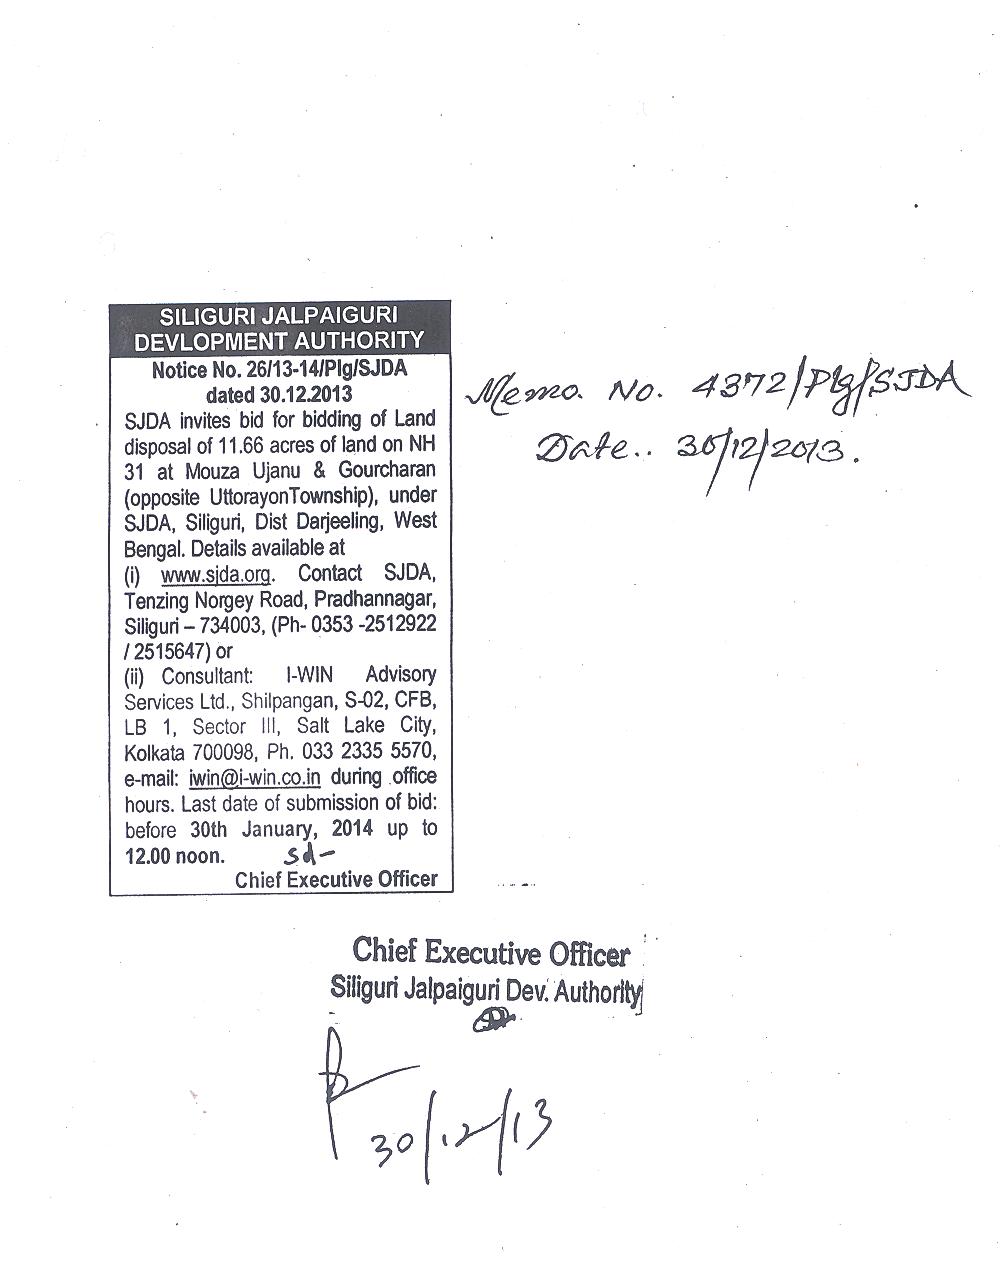 SILIGURI JALPAIGURI
DEVLOPMENT AUTHORITY
Notice No. 26/13-14/Plg/SJDA
dated 30.12.2013
SJDA invites bid for bidding of Land
disposal of 11.66 acres of land on NH
31 at Mouza Ujanu & Gourcharan
(opposite UttorayonTownship), under
SJDA, Siliguri, Dist Darjeeling, West
Bengal. Details available at
(i) www.sjda.org. Contact SJDA,
Tenzing Norgey Road, Pradhannagar,
Siliguri – 734003, (Ph- 0353 -2512922
/ 2515647) or
(ii) Consultant: I-WIN Advisory
Services Ltd., Shilpangan, S-02, CFB,
LB 1, Sector III, Salt Lake City,
Kolkata 700098, Ph. 033 2335 5570,
e-mail: iwin@i-win.co.in during office
hours. Last date of submission of bid:
before 30th January, 2014 up to
12.00 noon. Sd-
Chief Executive Officer
Memo. No. 4372/Plg/SJDA
Date.. 30/12/2013.
Chief Executive Officer
Siliguri Jalpaiguri Dev. Authority
30/12/13